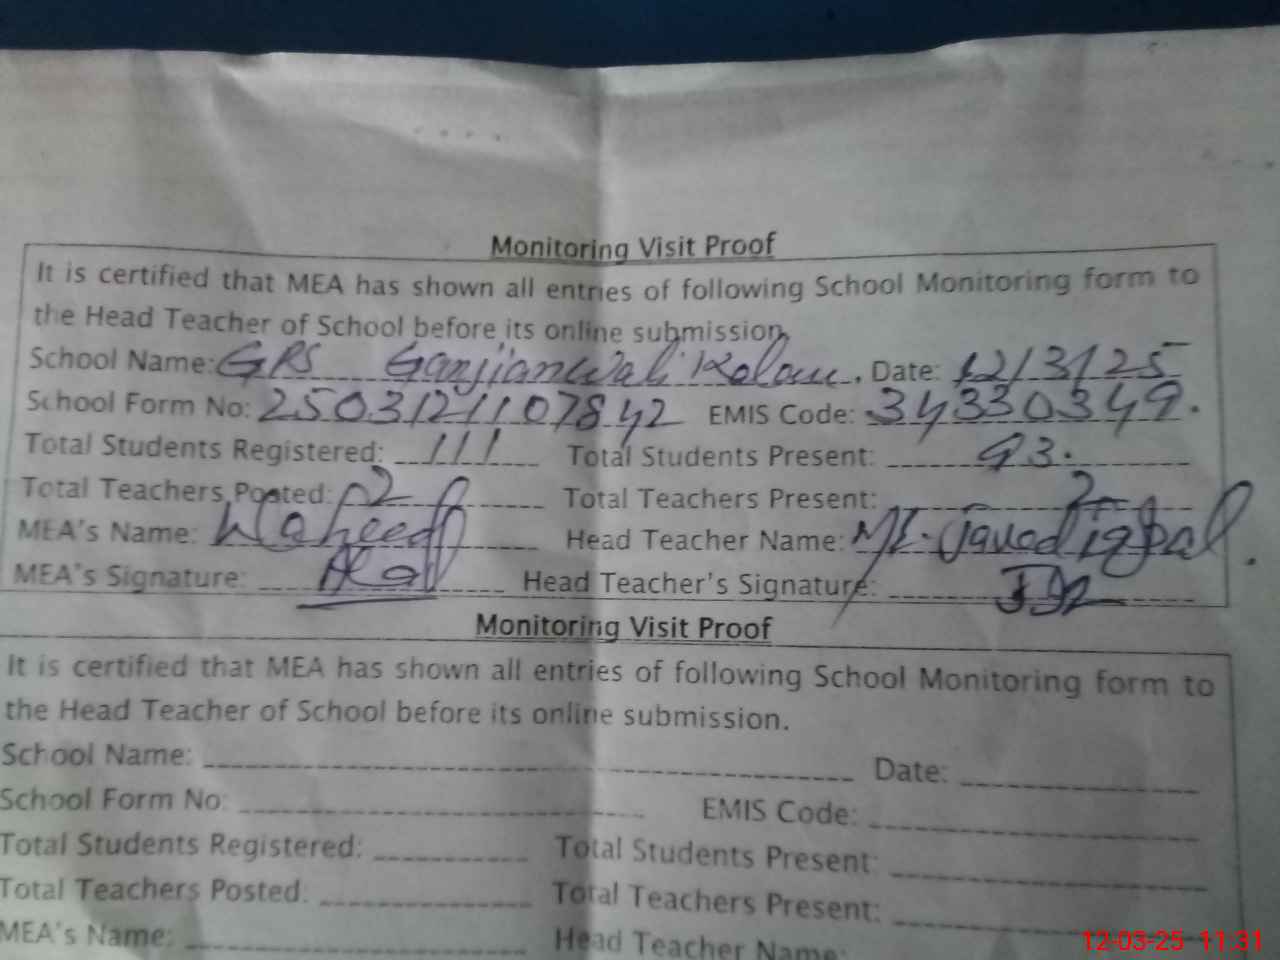 Monitoring Visit Proof
It is certified that MEA has shown all entries of following School Monitoring form to
the Head Teacher of School before its online submission,
School Name: GPS Ganjianwali Kalan, Date: 12/3/25
School Form No: 2503121107842 EMIS Code: 34330349.
Total Students Registered: 111 Total Students Present: 93.
Total Teachers Posted: 2 Total Teachers Present: 2
MEA's Name: Waheed Head Teacher Name: Javed iqbal
MEA's Signature: Head Teacher's Signature:
Monitoring Visit Proof
It is certified that MEA has shown all entries of following School Monitoring form to
the Head Teacher of School before its online submission.
School Name: Date:
School Form No: EMIS Code:
Total Students Registered: Total Students Present:
Total Teachers Posted: Total Teachers Present:
MEA's Name: Head Teacher Name:
12-03-25 11:31